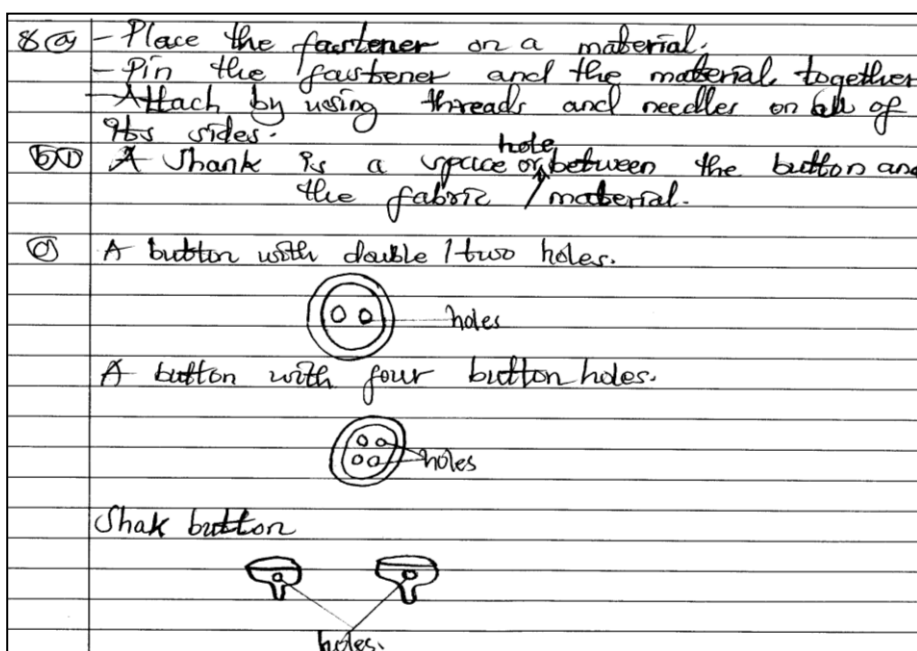 8(a) - Place the fastener on a material.
- Pin the fastener and the material together
- Attach by using threads and needles on all of
its sides.
(b)(i) A shank is a space or hole between the button and
the fabric / material.
(c) A button with double / two holes.
holes
A button with four button holes.
holes
Shak button
holes.